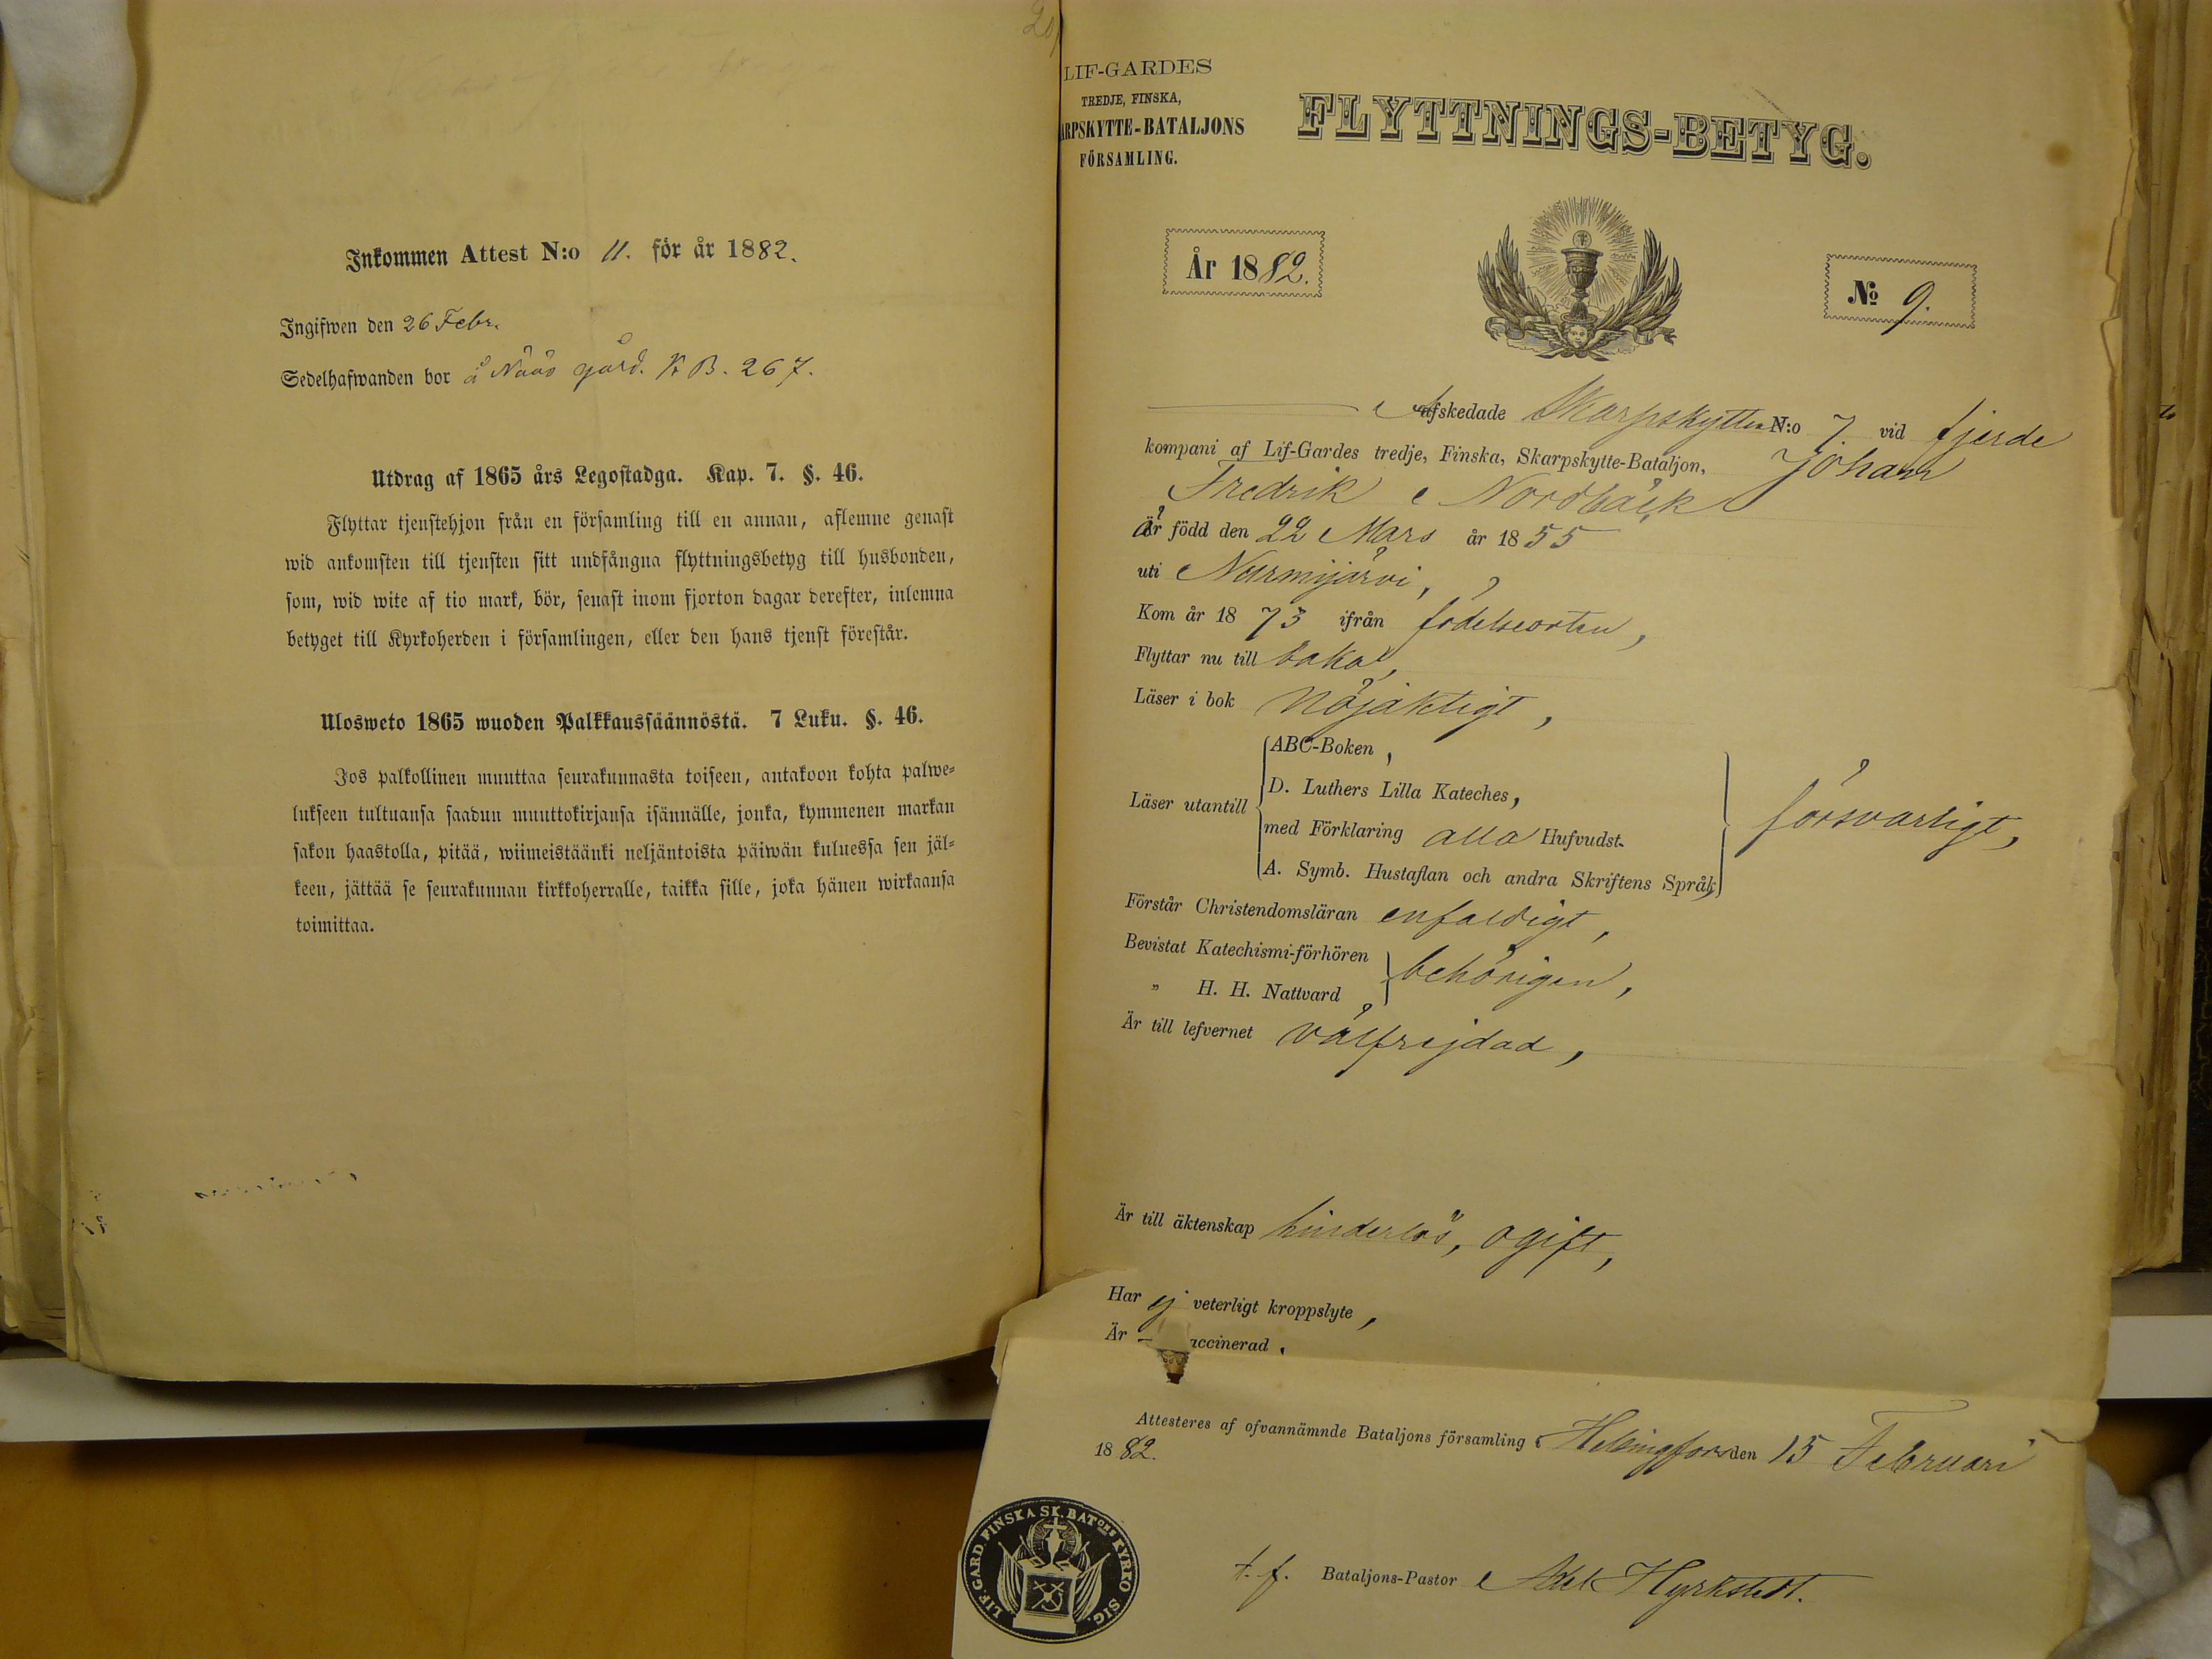 Inkommen Attest N:o 11. för år 1882.
Ingifwen den 26 Febr.
Sedelhafwanden bor å Nääs gård. KB. 267.
Utdrag af 1865 års Legostadga. Kap. 7. §. 46.
Flyttar tjenstehjon från en församling till en annan, aflemne genast
wid ankomsten till tjensten sitt undfångna flyttningsbetyg till husbonden,
som, wid wite af tio mark, bör, senast inom fjorton dagar derefter, inlemna
betyget till Kyrkoherden i församlingen, eller den hans tjenst förestår.
Ulosweto 1865 wuoden Palkkaussäännöstä. 7 Luku. §. 46.
Jos palkollinen muuttaa seurakunnasta toiseen, antakoon kohta palwe-
lukseen tultuansa saadun muuttokirjansa isännälle, jonka, kymmenen markan
sakon haastolla, pitää, wiimeistäänki neljäntoista päiwän kuluessa sen jäl-
keen, jättää se seurakunnan kirkkoherralle, taikka sille, joka hänen wirkaansa
toimittaa.
LIF-GARDES
TREDJE, FINSKA,
ARPSKYTTE-BATALJONS
FÖRSAMLING.
FLYTTNINGS-BETYG.
År 1882.
No 9.
Afskedade Skarpskytten N:o 7. vid fjerde
kompani af Lif-Gardes tredje, Finska, Skarpskytte-Bataljon, Johan
Fredrik Nordbäck
Är född den 22 Mars år 1855
uti Nurmijärvi,
Kom år 1873 ifrån födelseorten,
Flyttar nu till baka,
Läser i bok nöjaktigt,
Läser utantill
ABC-Boken,
D. Luthers Lilla Kateches,
med Förklaring alla Hufvudst.
A. Symb. Hustaflan och andra Skriftens Språk,
försvarligt,
Förstår Christendomsläran enfaldigt,
Bevistat Katechismi-förhören
„ H. H. Nattvard
behörigen,
Är till lefvernet välfrejdad,
Är till äktenskap hinderlös, ogift,
Har ej veterligt kroppslyte,
Är accinerad.
Attesteres af ofvannämnde Bataljons församling Helsingfors den 15 Februari
1882.
t. f. Bataljons-Pastor Adel Hyrkstedt.
LIF. GARD. FINSKA SK. BATONS KYRKO SIG.